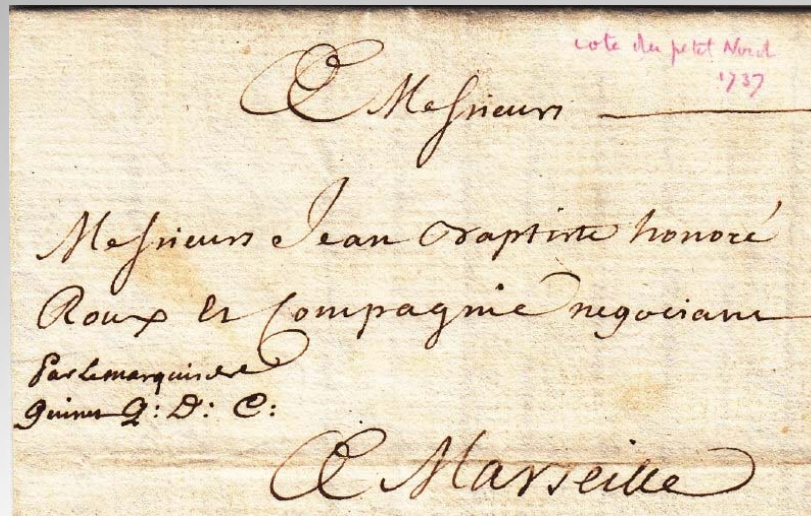 cote du petit Nord
1737
A Messieurs
Messieurs Jean Baptiste honoré
Roux et Compagnie negociant
Par Le marquis de
Q: D: C:
A Marseille